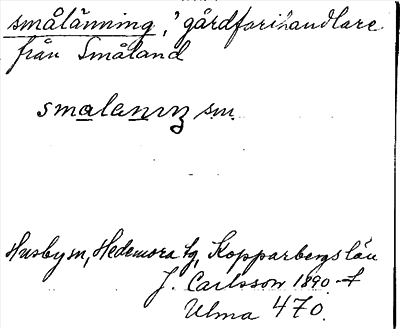 smålänning, 'gårdfarihandlare
från Småland
smalanıŋ sm.
Husby sn, Hedemora tg, Kopparbergs län
J. Carlsson 1890-t
Ulma 470.